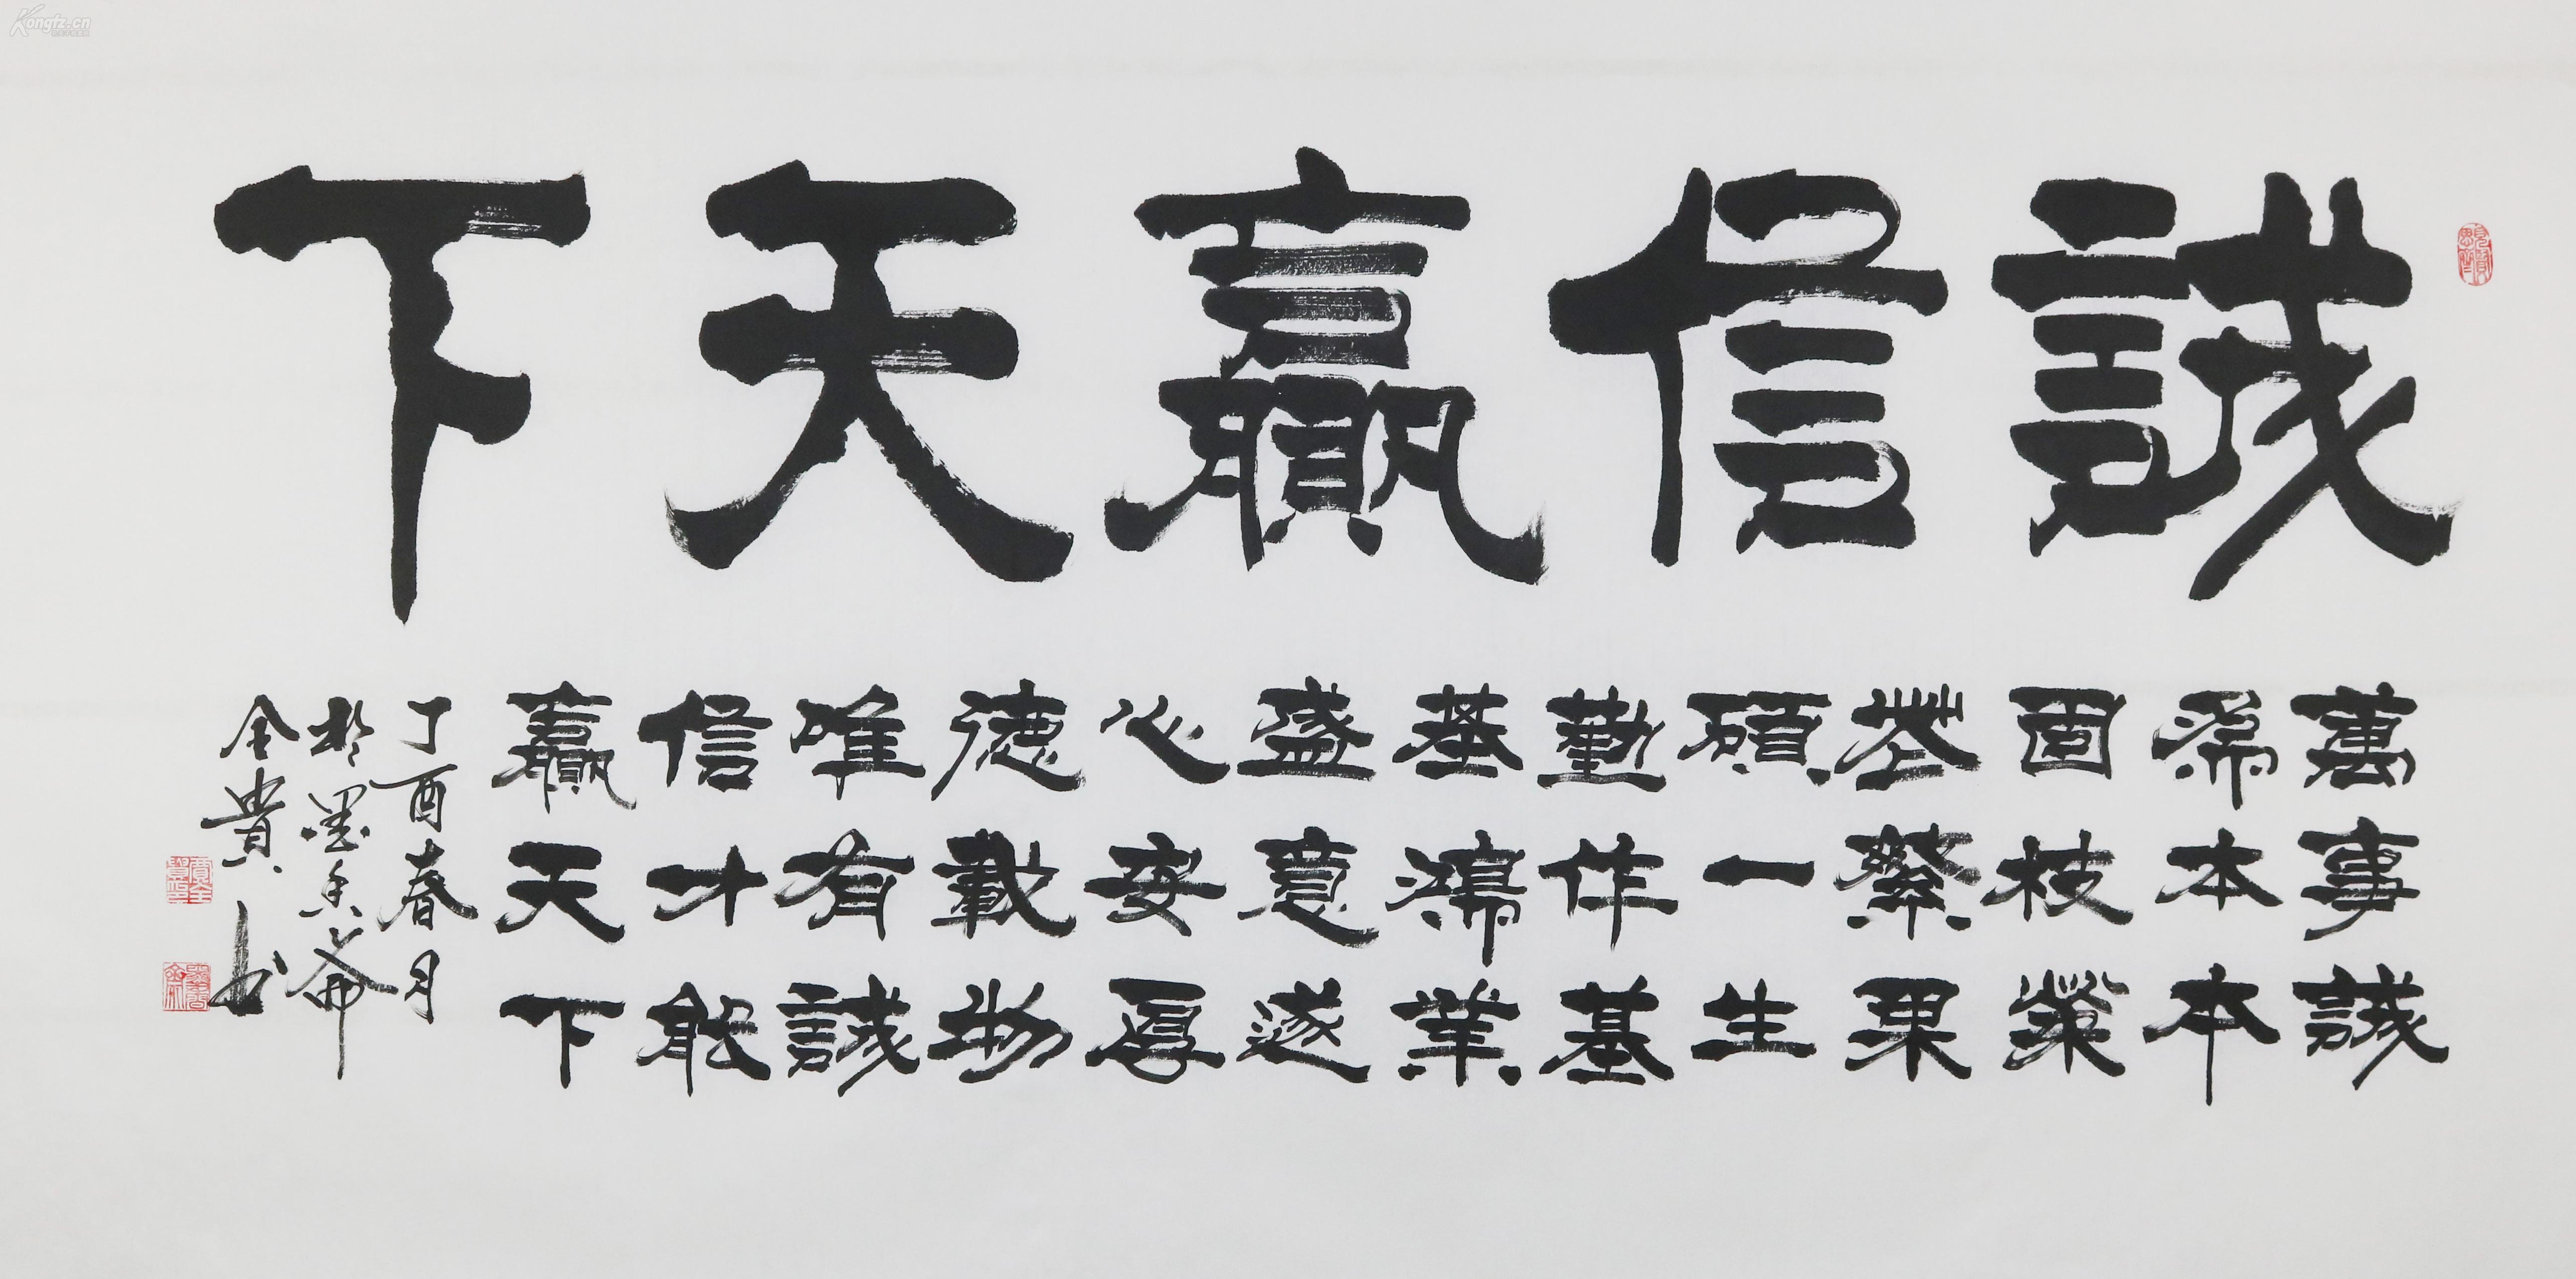 誠信贏天下
萬事誠
為本本
固枝榮
花繁果
碩一生
勤作基
基鴻業
盛意遂
心安厚
德載物
唯有誠
信才能
贏天下
丁酉春月
於墨香齋
全貴书
Kongfz.cn